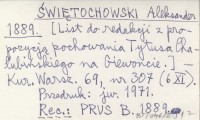 ŚWIĘTOCHOWSKI Aleksander
1889. [List do redakcji z pro-
pozycją pochowania Tytusa Cha-
łubińskiego na Giewoncie.] —
Kur. Warsz. 69, nr 307 (6 XI).
Przedruk: jw. 1971.
Rec.: PRVS B. 1889